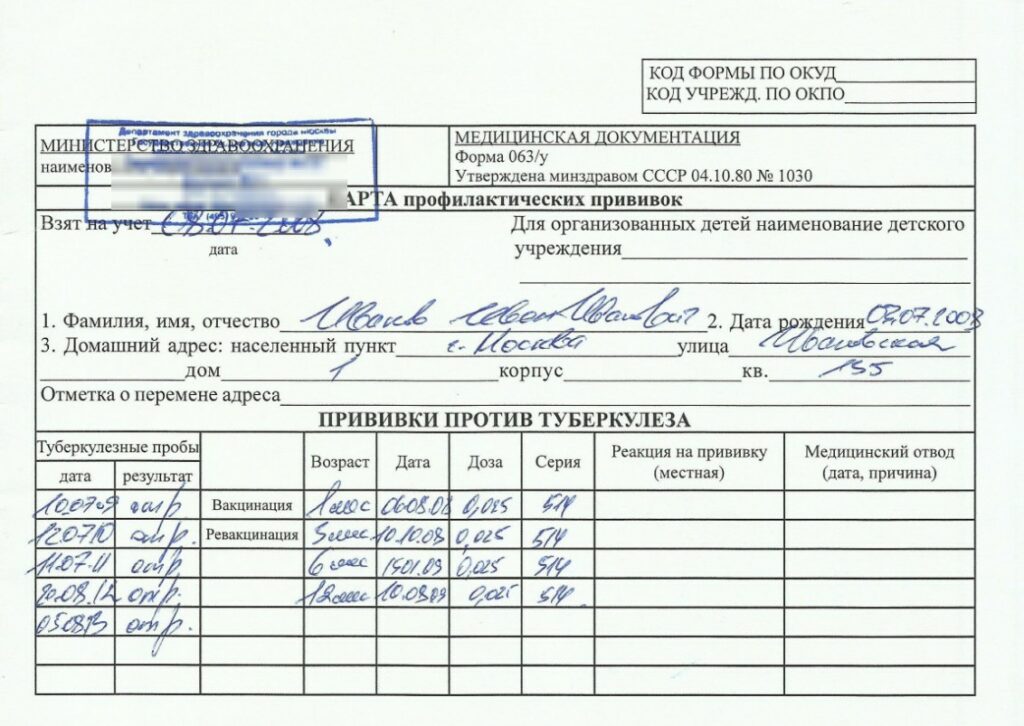 КОД ФОРМЫ ПО ОКУД
КОД УЧРЕЖД. ПО ОКПО
Департамент здравоохранения города Москвы
МИНИСТЕРСТВО ЗДРАВООХРАНЕНИЯ
наименов
МЕДИЦИНСКАЯ ДОКУМЕНТАЦИЯ
Форма 063/у
Утверждена минздравом СССР 04.10.80 № 1030
АРТА профилактических прививок
Взят на учет
дата
Для организованных детей наименование детского
учреждения
1. Фамилия, имя, отчество Иванов Иван Иванович 2. Дата рождения 02.07.2008
3. Домашний адрес: населенный пункт г. Москва улица Ивановская
дом 1 корпус кв. 155
Отметка о перемене адреса
ПРИВИВКИ ПРОТИВ ТУБЕРКУЛЕЗА
Туберкулезные пробы Возраст Дата Доза Серия Реакция на прививку (местная) Медицинский отвод (дата, причина)
дата результат
10.07.09 отр Вакцинация 1 мес 06.08.08 0,025 514
12.07.10 отр. Ревакцинация 3 мес 10.10.08 0,025 514
11.07.11 отр 6 мес 15.01.09 0,025 514
20.08.12 отр. 12 мес 10.08.09 0,025 514
05.08.13 отр.